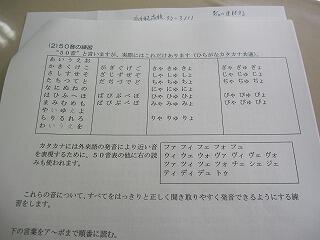 (2)50音の練習
"50音"と言いますが、実際にはこれだけあります(ひらがなカタカナ共通)。
あいうえお
かきくけこ がぎぐげご きゃ きゅ きょ ぎゃ ぎゅ ぎょ
さしすせそ ざじずぜぞ しゃ しゅ しょ じゃ じゅ じょ
たちつてと だぢづでど ちゃ ちゅ ちょ
なにぬねの にゃ にゅ にょ
はひふへほ ばびぶべぼ ひゃ ひゅ ひょ びゃ びゅ びょ
まみむめも ぱぴぷぺぽ みゃ みゅ みょ ぴゃ ぴゅ ぴょ
やいゆえよ
らりるれろ りゃ りゅ りょ
わいうえを
カタカナには外来語の発音により近い音を表現するために、50音表の他に右の読みも使われます。
ファ フィ フェ フォ フュ
ティ ディ デュ トゥ
これらの音について、すべてをはっきりと正しく聞き取りやすく発音できるようにする練
習をします。
下の言葉をア~ポまで順番に読む。